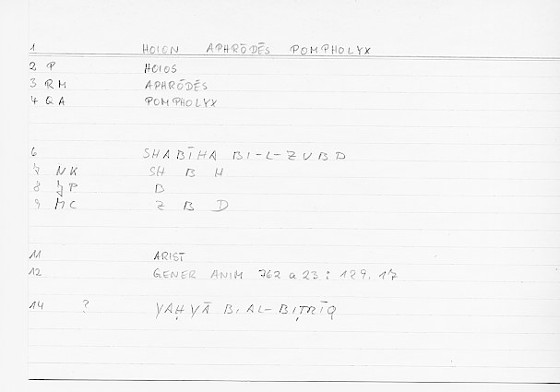 1 HOION APHRŌDĒS POMPHOLYX
2 P HOIOS
3 RM APHRŌDĒS
4 QA POMPHOLYX
6 SHABĪHA BI-L-ZUBD
7 NK SH B H
8 JP B
9 MC Z B D
11 ARIST
12 GENER ANIM 762 a 23 : 129, 17
14 ? YAḤYĀ B. AL-BIṬRĪQ